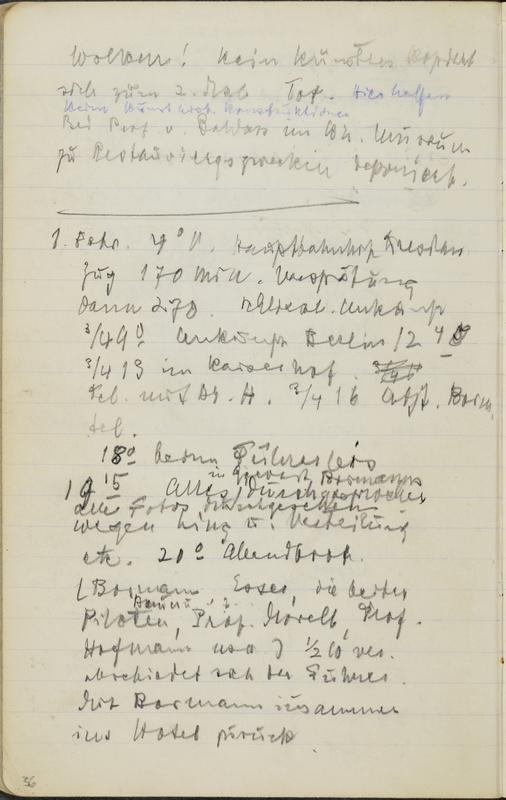 Wolken! Kein Künstler kopiert
sich zum 2. Mal. Tot. Hier helfen
keine Konstruktionen
Bei Prof v. Baldass im Kh. Museum
zu Restaurierungszwecken deponiert.
1. Febr. 7⁰ U. Hauptbahnhof Dresden
Zug 170 Min. Verspätung
dann 270. Ankunft
3/4 9 Ankunft Berlin 12
3/4 13 im Kaiserhof.
Tel. mit Dr. H. 3/4 16 Borm.
tel.
18⁰ beim Führer bis
in Gegenwart Bormanns
19 15 Alles durchgesprochen
alle Fotos durchgesehen
wegen Linz u. Verteilung
etc. 20⁰ Abendbrot.
(Bormann Esser, die beiden
Piloten, Prof. Morell, Prof.
Hofmann usw) 1/2 10 ver-
abschiedet sich der Führer.
Mit Bormann zusammen
ins Hotel zurück
36